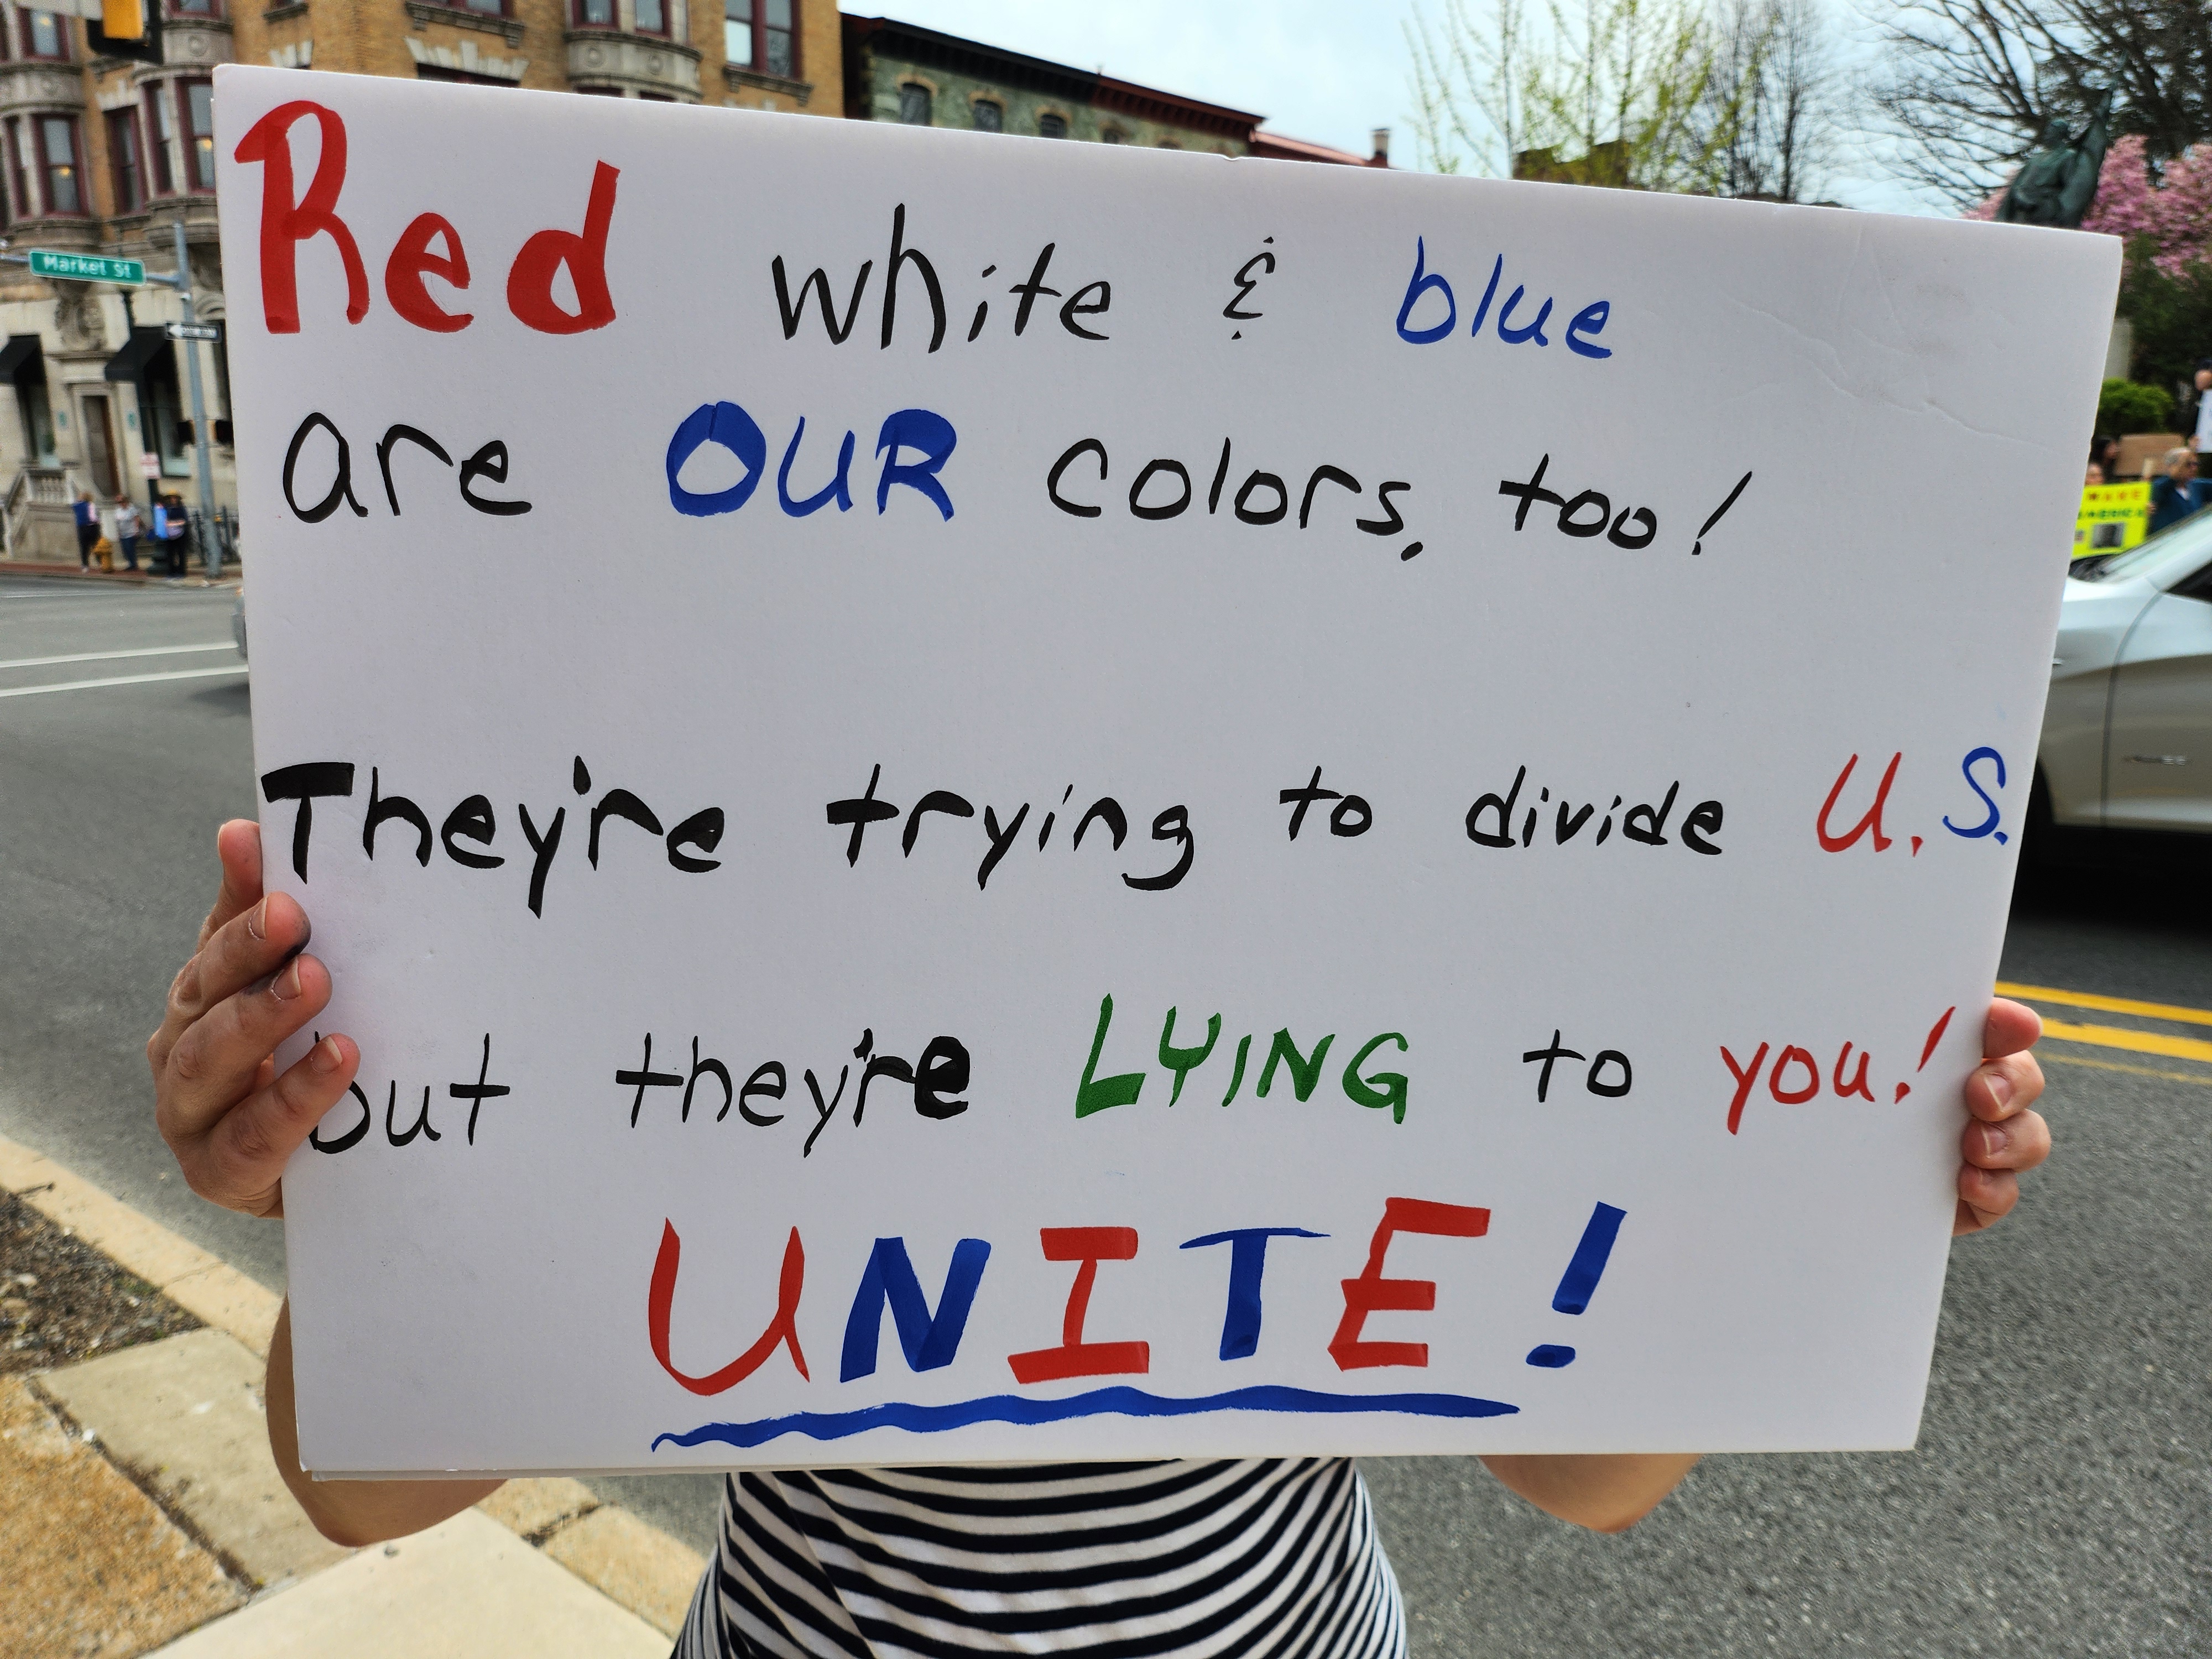 Market St
Red white & blue
are OUR colors, too!
They're trying to divide U.S.
but they're LYING to you!
UNITE!